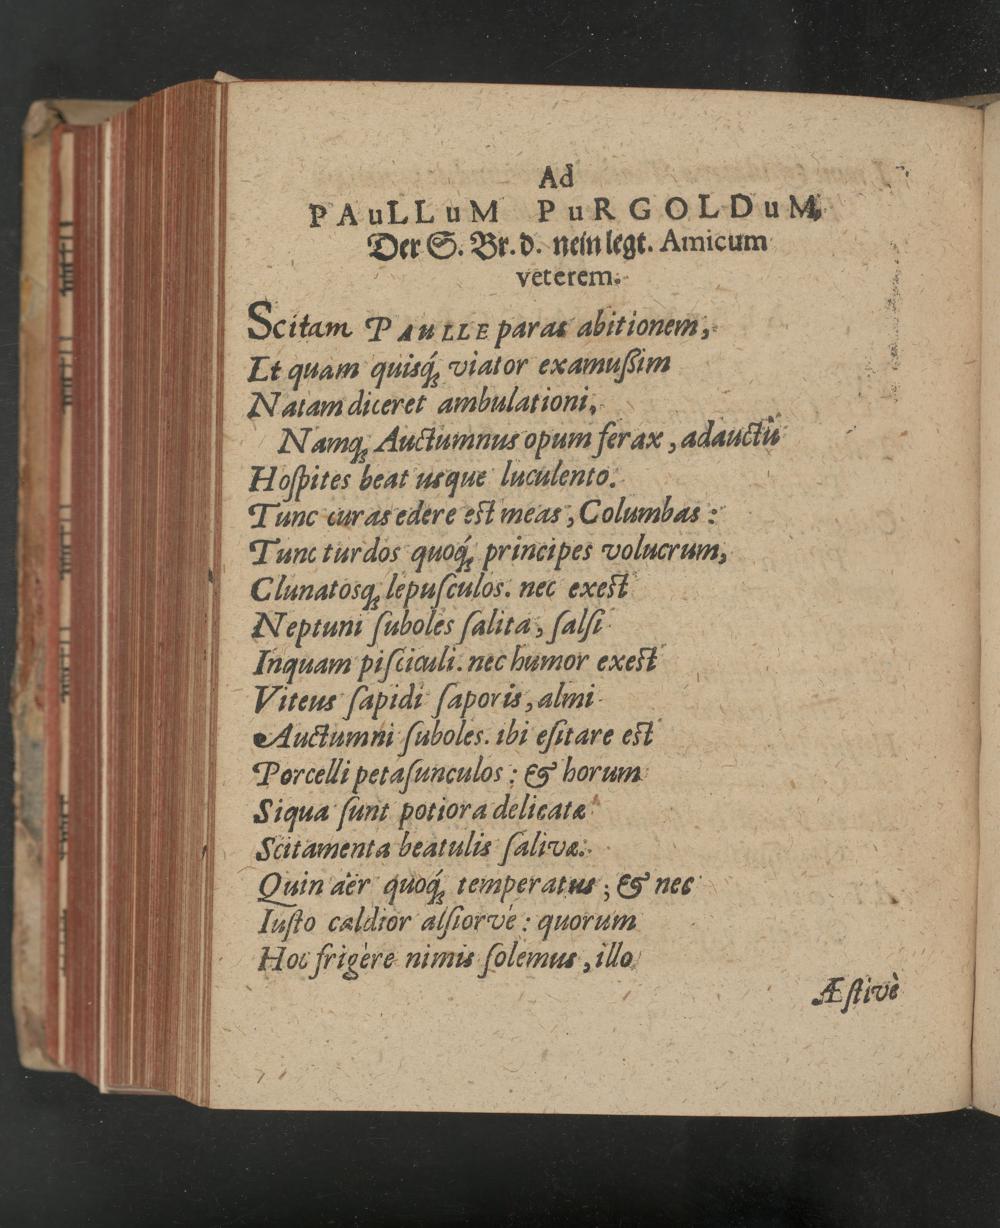 Ad
PAuLLuM PuRGOLDuM,
Der S. Br. d. nein legt. Amicum
veterem.
Scitam PAuLLE paras abitionem,
Et quam quisq́ꝫ viator examuſsim
Natam diceret ambulationi,
Namqꝫ Auctumnus opum ferax, adauctū
Hoſpites beat usque luculento.
Tunc curas edere est meas, Columbas:
Tunc turdos quoq́ꝫ principes volucrum,
Clunatosqꝫ lepuſculos. nec exest
Neptuni ſuboles ſalita, ſalſi
Inquam piſciculi. nec humor exest
Viteus ſapidi ſaporis, almi
Auctumni ſuboles. ibi eſitare est
Porcelli petaſunculos: & horum
Siqua ſunt potiora delicatæ
Scitamenta beatulis ſalivæ.
Quin aër quoq́ꝫ temperatus; & nec
Iuſto cældior alſiorvè: quorum
Hoc frigère nimis ſolemus, illo
Æſtivè